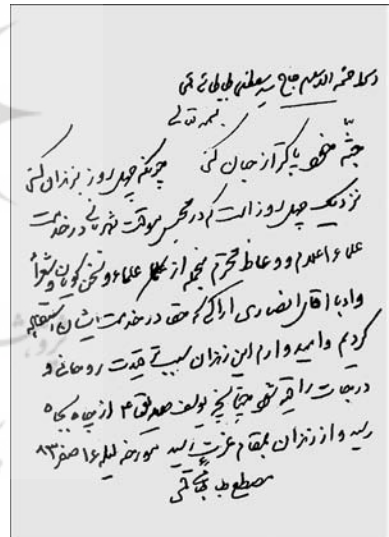 دستخط حجة الاسلام حاج سید مصطفی طباطبائی قمی
بسمه تعالی
جثّه خود پاکتر از جان کنی چونکه چهل روز بزندان کنی
نزدیک چهل روز است که در محبس موقت شهربانی در خدمت
علماء اعلام و وعاظ محترم منجمله از علماء و سخن گویان و شعرا
و ادبا آقای انصاری اراکی که حقا در خدمت ایشان استفاده
کردم و امیدوارم این زندان سبب قدرت روحانی و
درجات راقیه شود چنانچه یوسف صدیق از چاه بجاه
رسید و از زندان بمقام عزت رسید مورخه لیله ۱۶ صفر ۸۳
مصطفی طباطبائی قمی